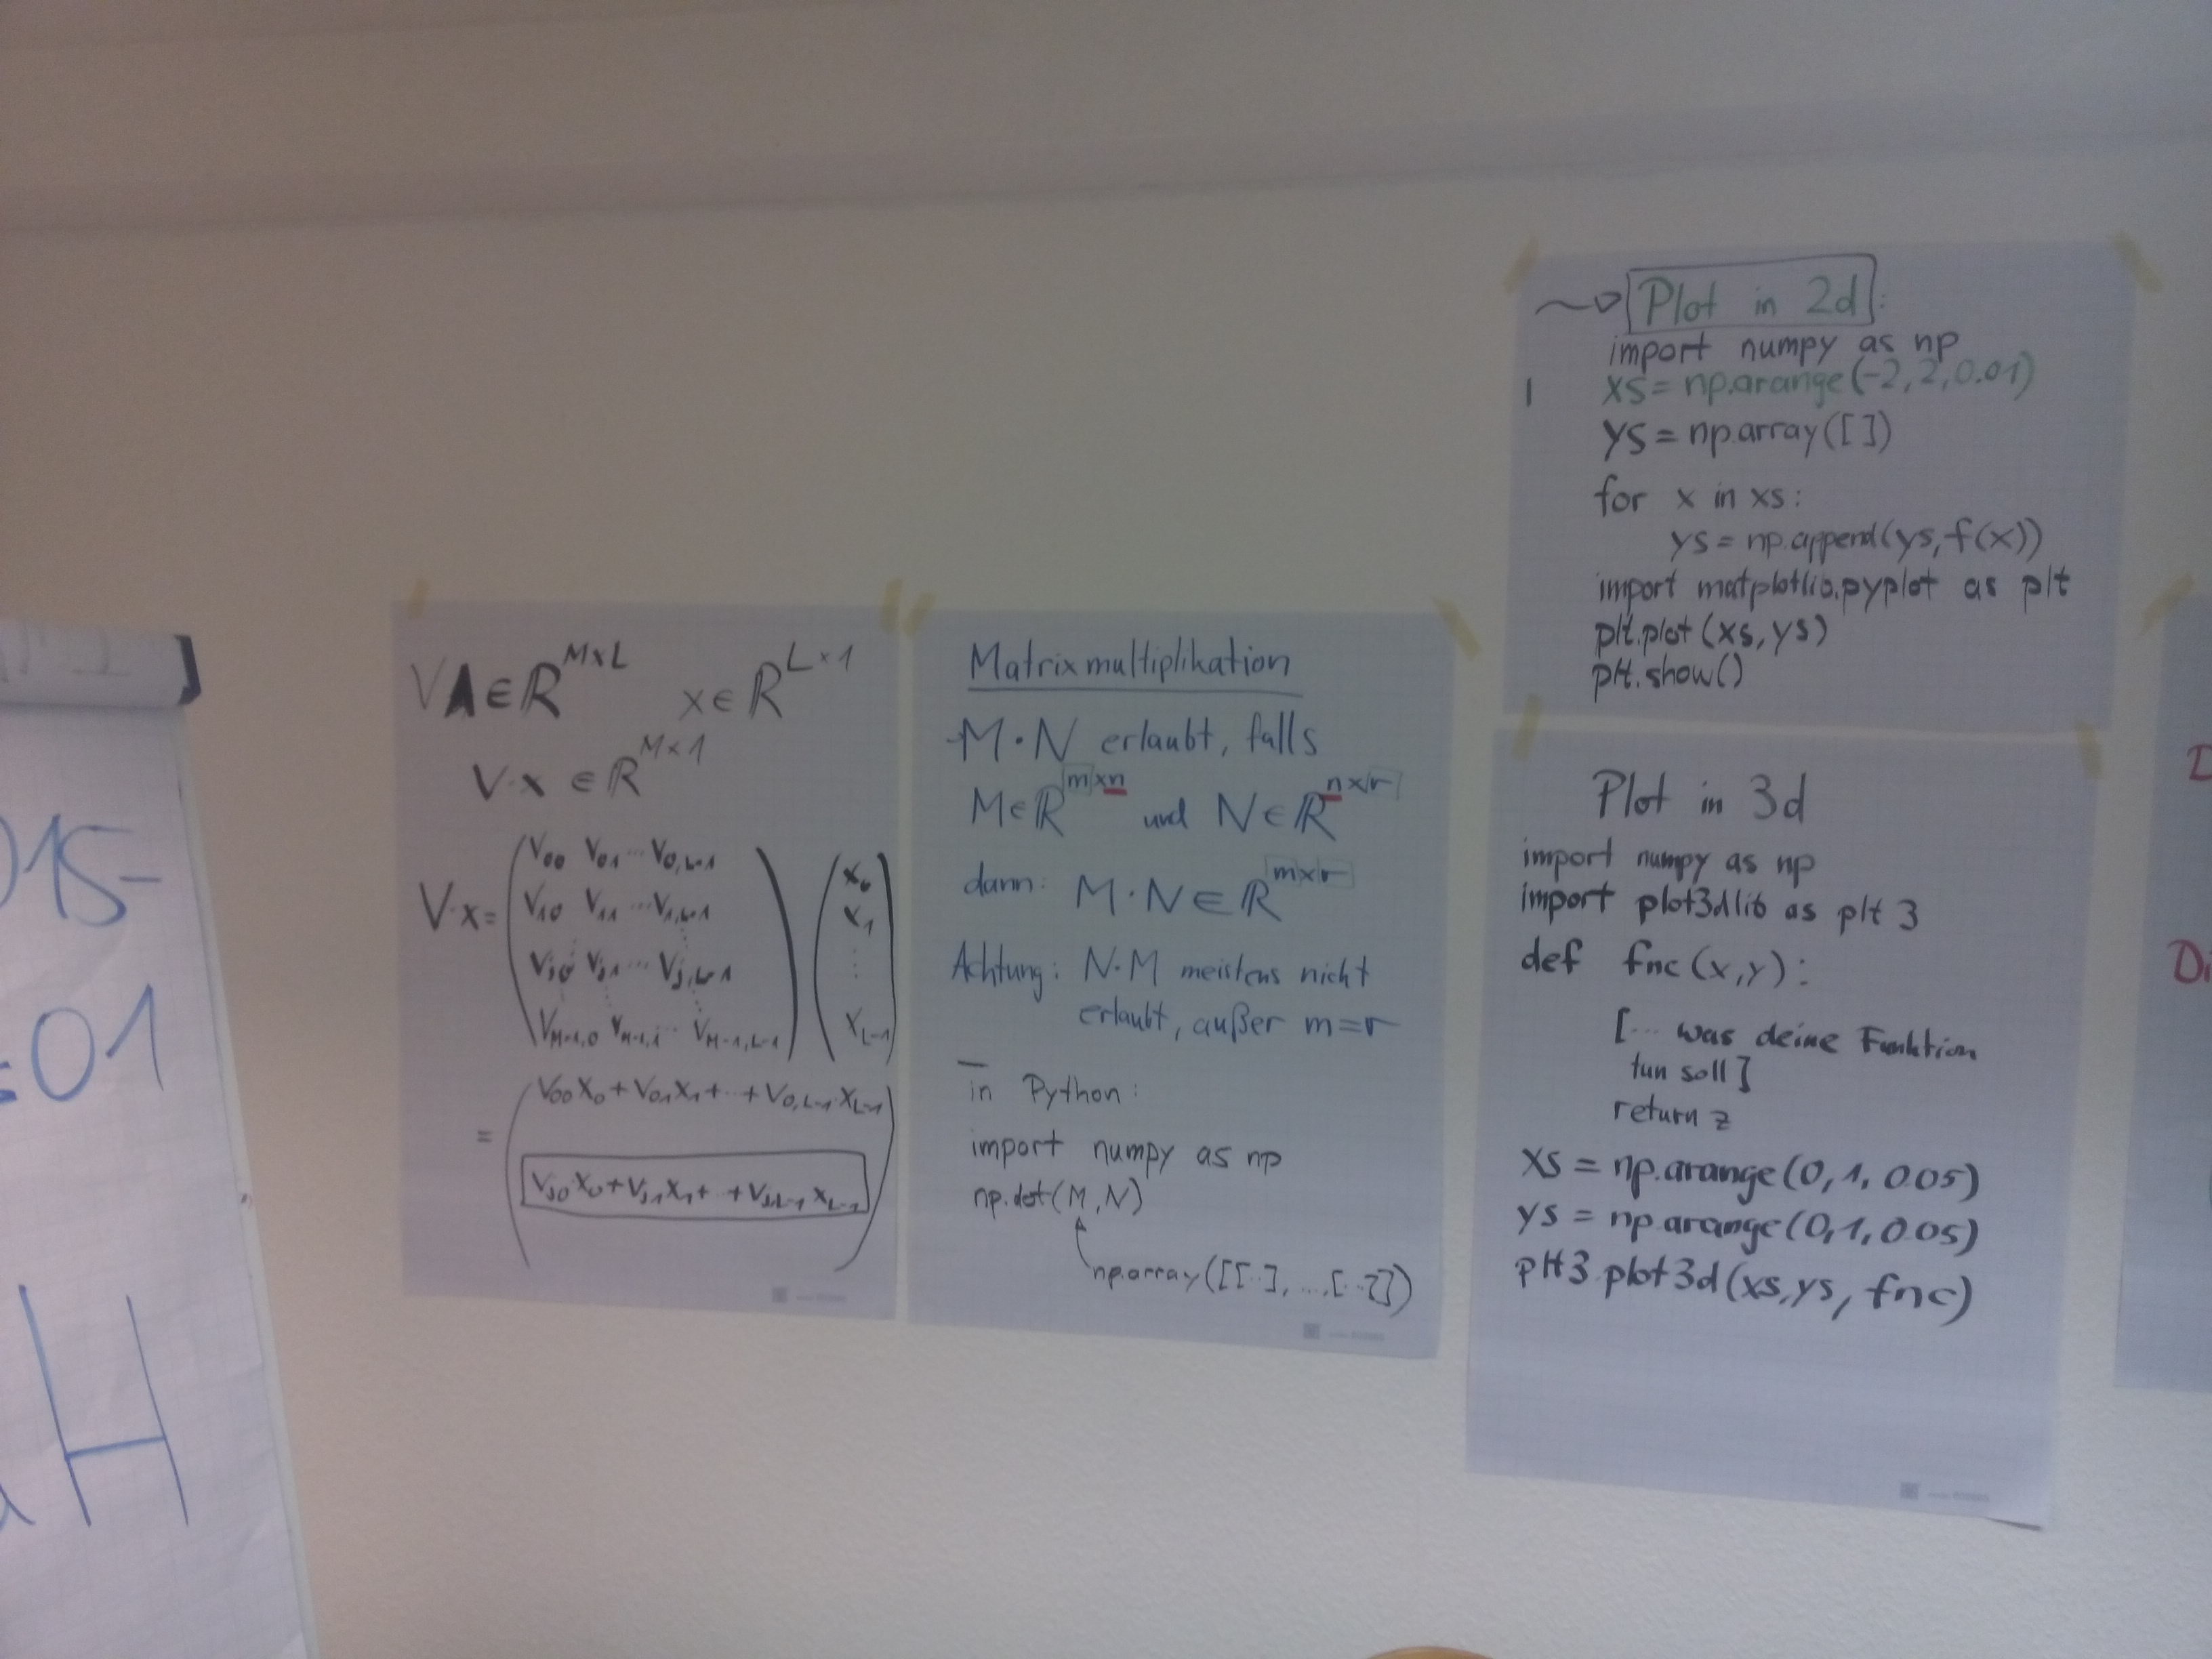 015-
01
H
VA∈ℝ^{M×L} x∈ℝ^{L×1}
V·x ∈ℝ^{M×1}
V·x= (V_{00} V_{01} ... V_{0,L-1}) (x_0)
(V_{10} V_{11} ... V_{1,L-1}) (x_1)
(V_{j0} V_{j1} ... V_{j,L-1}) (⋮)
(V_{M-1,0} V_{M-1,1} ... V_{M-1,L-1}) (x_{L-1})
= (V_{00}x_0+V_{01}x_1+...+V_{0,L-1}·x_{L-1})
(V_{j0}x_0+V_{j1}x_1+...+V_{j,L-1}x_{L-1})
Matrixmultiplikation
M·N erlaubt, falls
M∈ℝ^{m×n} und N∈ℝ^{n×r}
dann: M·N∈ℝ^{m×r}
Achtung: N·M meistens nicht
erlaubt, außer m=r
in Python:
import numpy as np
np.dot(M,N)
np.array([[..],...,[..]])
Plot in 2d:
import numpy as np
xs=np.arange(-2,2,0.01)
ys=np.array([])
for x in xs:
ys=np.append(ys,f(x))
import matplotlib.pyplot as plt
plt.plot(xs,ys)
plt.show()
Plot in 3d
import numpy as np
import plot3dlib as plt3
def fnc(x,y):
[... was deine Funktion
tun soll]
return z
xs = np.arange(0,1,0.05)
ys = np.arange(0,1,0.05)
plt3.plot3d(xs,ys,fnc)
D
Di